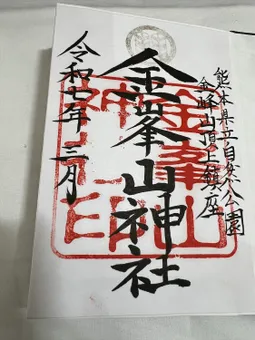 熊本県立自然公園
金峰山頂上鎮座
金峯山神社
令和七年三月
金峯山
神社印